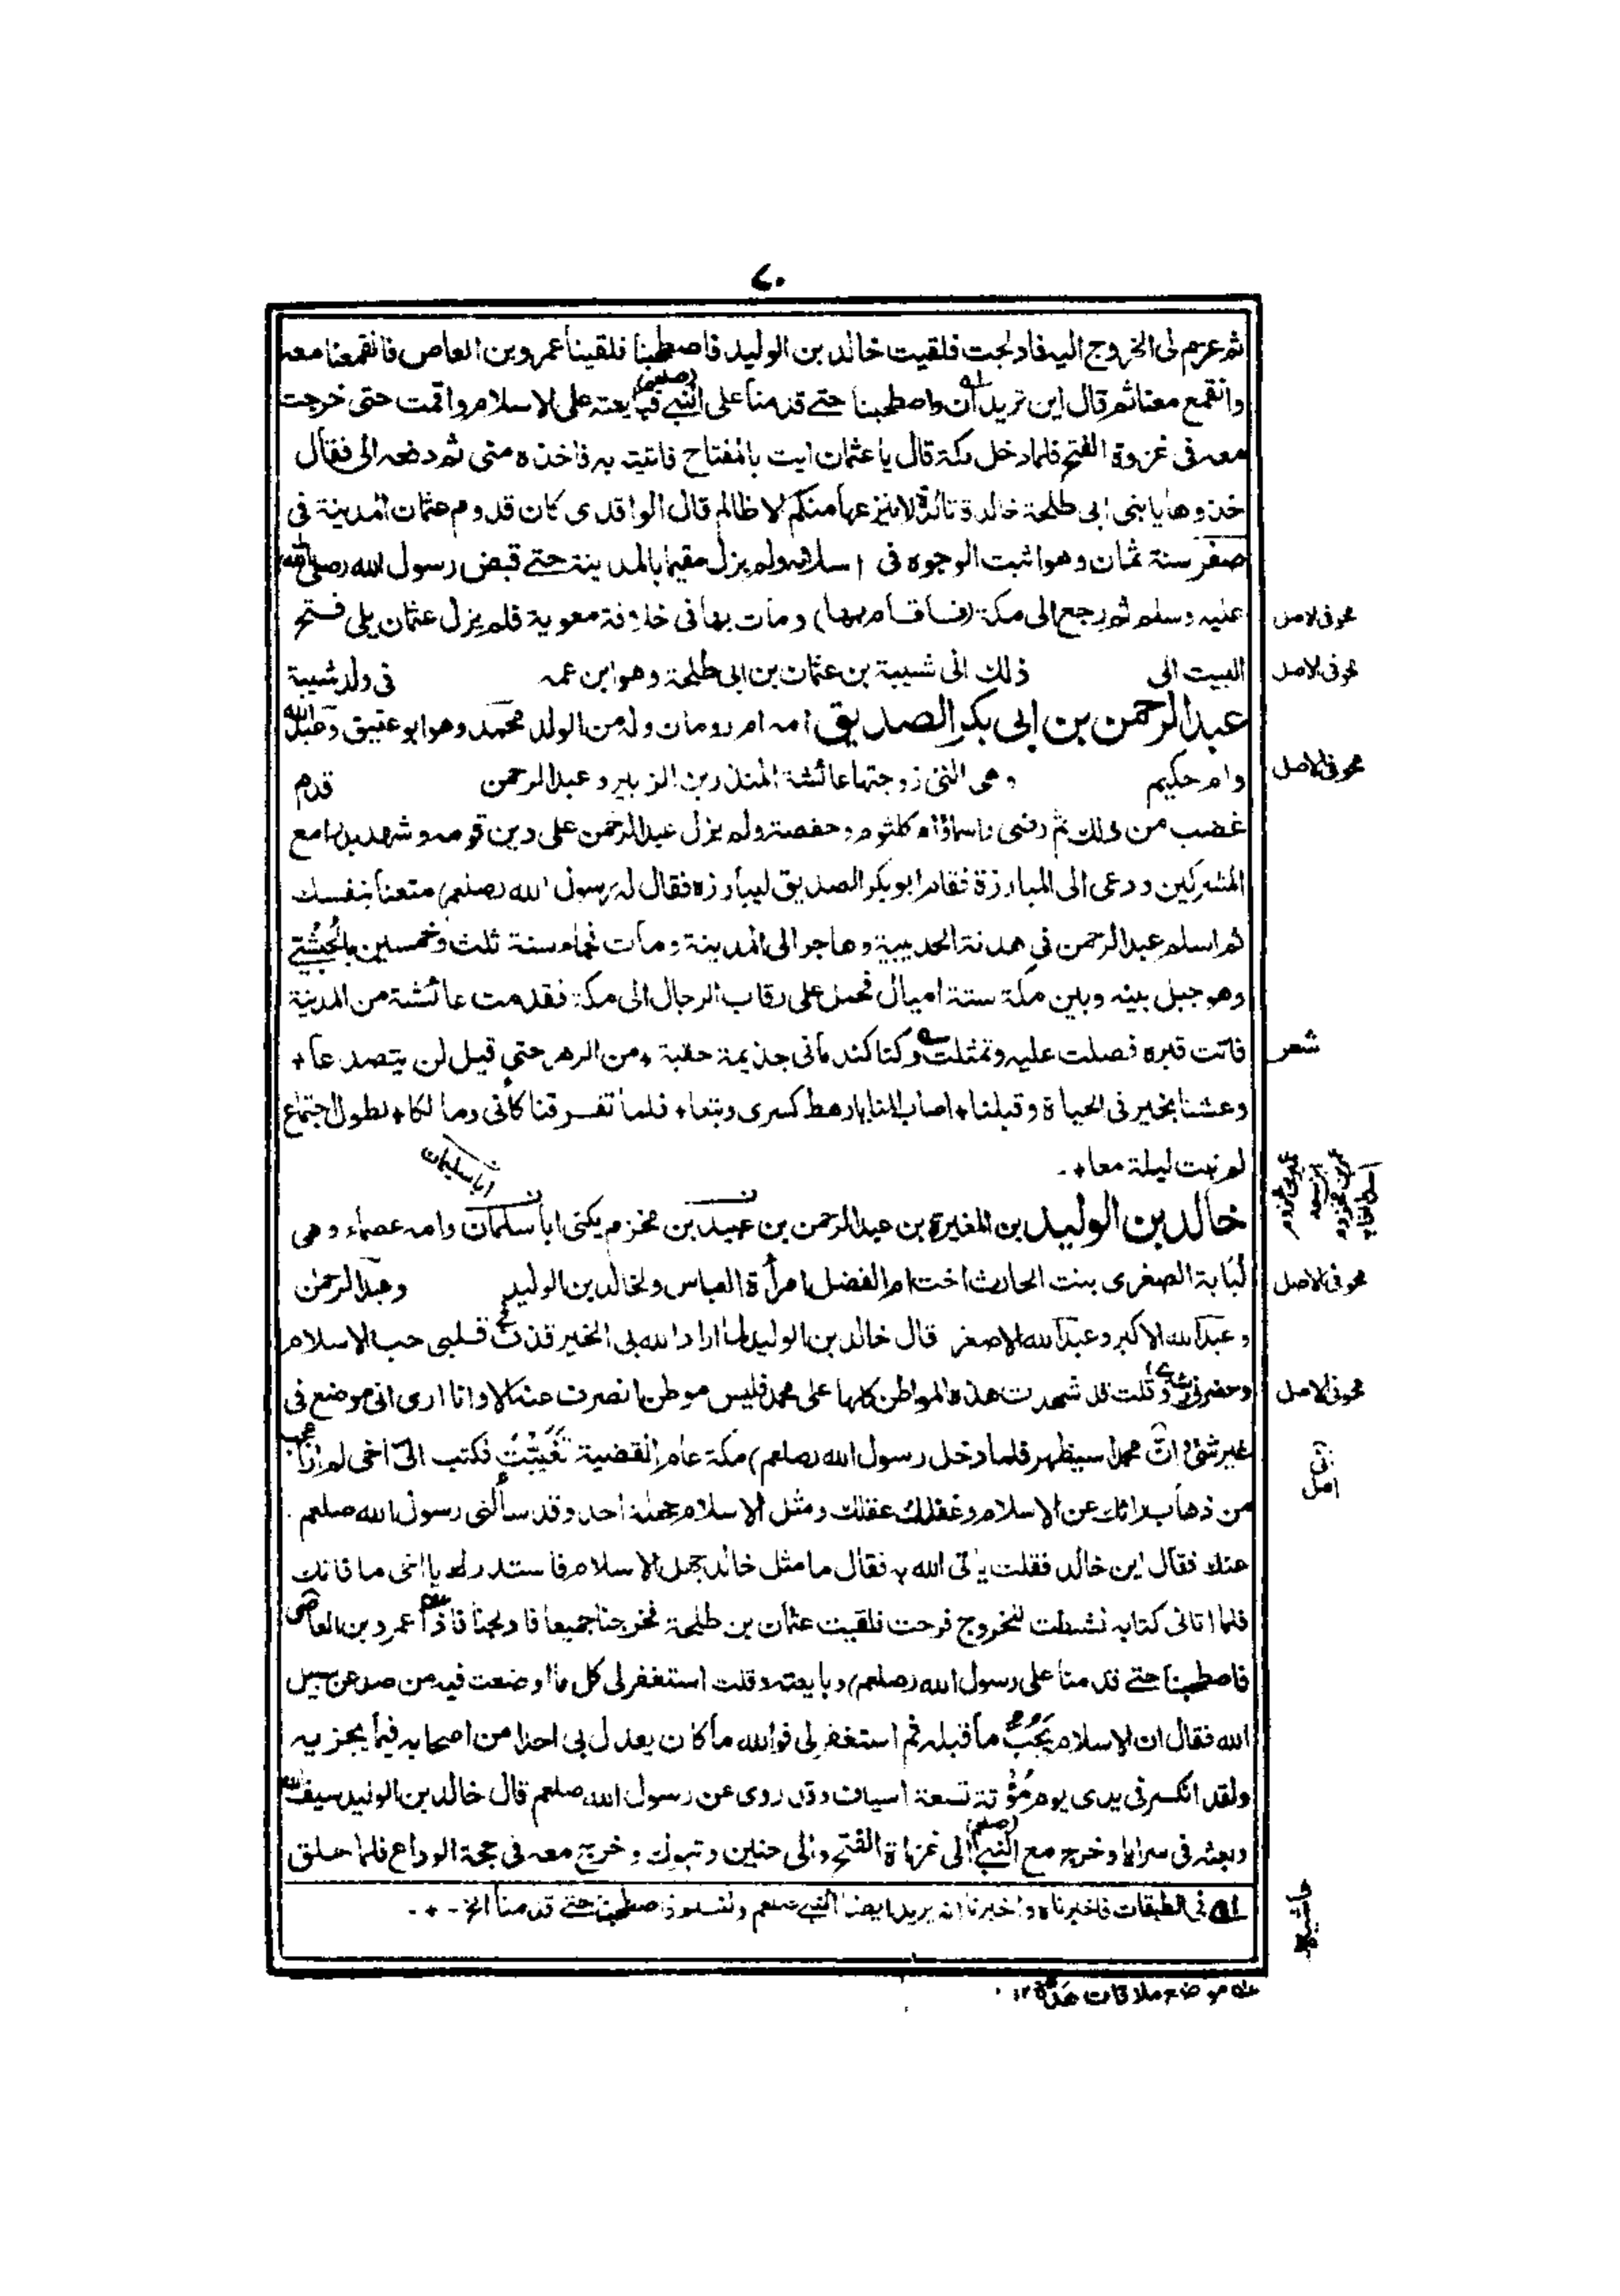 ٨٠
ثم عزم لى الخروج اليه فادلجت فلقيت خالد بن الوليد فاصطحبنا فلقينا عمرو بن العاص فانقمعنا معه
وانقمع معنا ثم قال اين تريدان واصطحبنا حتے قدمنا على النبے (صلعم) فبايعته على الاسلام واقمت حتى خرجت
معه فى غزوة الفتح فلما دخل مكة قال يا عثمان ايت بالمفتاح فاتيته به فاخذه منى ثم دفعه الى فقال
خذوها يا بنى ابى طلحة خالدة تالدة لا ينزعها منكم الا ظالم قال الواقدى كان قدوم عثمان المدينة فى
صفر سنة ثمان وهو اثبت الوجوه فى اسلامه ولم يزل مقيما بالمدينة حتے قبض رسول الله (صلى الله
عليه وسلم ثم رجع الى مكة (فاقام بها) ومات بها فى خلافة معوية فلم يزل عثمان يلى فتح
محو فى الاصل
البيت الى ذلك الى شيبة بن عثمان بن ابى طلحة وهو ابن عمه فى ولد شيبة
محو فى الاصل
عبد الرحمن بن ابى بكر الصديق امه ام رومان وله من الولد محمد وهو ابو عتيق وعبد الله
وام حكيم وهى التى زوجتها عائشة المنذر بن الزبير وعبد الرحمن قدم
محو فى الاصل
غضب من ذلك ثم رضى واسماؤ ام كلثوم وحفصة ولم يزل عبد الرحمن على دين قومه وشهد بدرا مع
المشركين ودعى الى المبارزة فقام ابو بكر الصديق ليبارزه فقال له رسول الله (صلعم) متعنا بنفسك
ثم اسلم عبد الرحمن فى هدنة الحديبية وهاجر الى المدينة ومات فجاءة سنة ثلث وخمسين بالحُبْشِيّے
وهو جبل بينه وبين مكة ستة اميال فحمل على رقاب الرجال الى مكة فقدمت عائشة من المدينة
فاتت قبره فصلت عليه وتمثلت وكنا كندمانى جذيمة حقبة + من الدهر حتى قيل لن يتصدعا +
شعر
وعشنا بخير فى الحياة وقبلنا + اصاب المنايا رهط كسرى وتبعا + فلما تفرقنا كأنى ومالكا + لطول اجتماع
لم نبت ليلة معا + -
ابا سليمان
خالد بن الوليد بن المغيرة بن عبد الرحمن بن عبيد بن مخزم يكنى ابا سلمان وامه عصماء وهى
لُبَابة الصغرى بنت الحارث اخت ام الفضل امرأة العباس ولخالد بن الوليد وعبد الرحمن
محو فى الاصل
وعبد الله الاكبر وعبد الله الاصغر قال خالد بن الوليد لما اراد الله بى الخير قذف فے قلبى حب الاسلام
وحضرنى رشدى وقلت قد شهدت هذه المواطن كلها على محمد فليس موطن انصرف عنه الا وانا ارى انى موضع فى
محو فى الاصل
غير شئ و انّ محمدا سيظهر فلما دخل رسول الله (صلعم) مكة عام القضية تَغَيَّبْتُ فكتب الىّ اخى لم ار اعجب
من ذهاب رائك عن الاسلام وعقلك عقلك ومثل الاسلام جهله احد وقد سألنى رسول الله صلعم
عنك فقال اين خالد فقلت ياتى الله به فقال ما مثل خالد جهل الاسلام فاستدرك يا اخى ما فاتك
فلما اتانى كتابه نشطت للخروج فرحت فلقيت عثمان بن طلحة فخرجنا جميعا فادلجنا فاذا عمرو بن العاص
فاصطحبنا حتے قدمنا على رسول الله (صلعم) وبايعته وقلت استغفر لى كل ما اوضعت فيه من صد عن سبيل
الله فقال ان الاسلام يَجُبُّ ما قبله ثم استغفر لى فوالله ما كان يعدل بى احدا من اصحابه فيما يجزيه
ولقد انكسر فى يدى يوم مُؤْتة تسعة اسياف وقد روى عن رسول الله صلعم قال خالد بن الوليد سيف الله
وبعثه فى سرايا وخرج مع النبے (صلعم) الى غزاة الفتح والى حنين وتبوك وخرج معه فى حجة الوداع فلما حلق
له فى الطبقات فاخبرناه واخبرنا انه يريد ايضا النبے صلعم ونسلم فاصطحبنا حتے قدمنا الخ - + -
حاشية